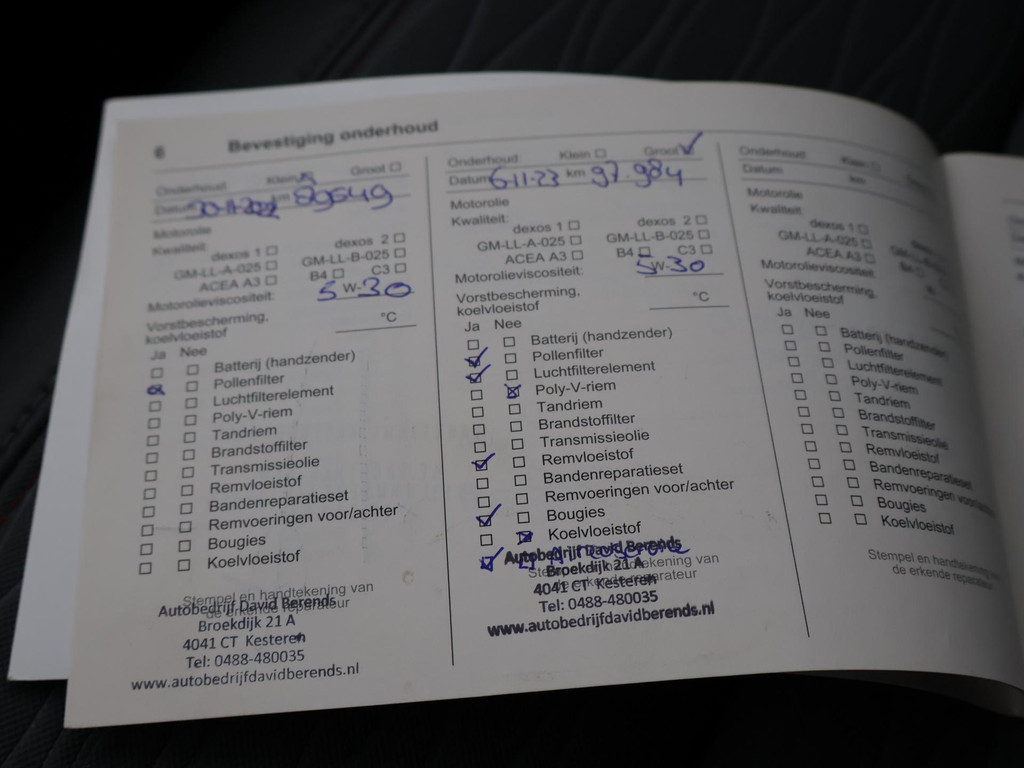 6 Bevestiging onderhoud
Onderhoud: Klein Groot
Datum 30-11-2022 km 89549
Motorolie
Kwaliteit:
dexos 1 dexos 2
GM-LL-A-025 GM-LL-B-025
ACEA A3 B4 C3
Motorolieviscositeit: 5 W-30
Vorstbescherming,
koelvloeistof °C
Ja Nee
Batterij (handzender)
Pollenfilter
Luchtfilterelement
Poly-V-riem
Tandriem
Brandstoffilter
Transmissieolie
Remvloeistof
Bandenreparatieset
Remvoeringen voor/achter
Bougies
Koelvloeistof
Stempel en handtekening van
de erkende reparateur
Autobedrijf David Berends
Broekdijk 21 A
4041 CT Kesteren
Tel: 0488-480035
www.autobedrijfdavidberends.nl
Onderhoud: Klein Groot
Datum 6-11-23 km 97.984
Motorolie
Kwaliteit:
dexos 1 dexos 2
GM-LL-A-025 GM-LL-B-025
ACEA A3 B4 C3
Motorolieviscositeit: 5W-30
Vorstbescherming,
koelvloeistof °C
Ja Nee
Batterij (handzender)
Pollenfilter
Luchtfilterelement
Poly-V-riem
Tandriem
Brandstoffilter
Transmissieolie
Remvloeistof
Bandenreparatieset
Remvoeringen voor/achter
Bougies
Koelvloeistof
Stempel en handtekening van
de erkende reparateur
Autobedrijf David Berends
Broekdijk 21 A
4041 CT Kesteren
Tel: 0488-480035
www.autobedrijfdavidberends.nl
Onderhoud: Klein
Datum km
Motorolie
Kwaliteit:
dexos 1
GM-LL-A-025
ACEA A3 B4
Motorolieviscositeit:
Vorstbescherming,
koelvloeistof
Ja Nee
Batterij (handzender)
Pollenfilter
Luchtfilterelement
Poly-V-riem
Tandriem
Brandstoffilter
Transmissieolie
Remvloeistof
Bandenreparatieset
Remvoeringen
Bougies
Koelvloeistof
Stempel en handtekening van
de erkende reparateur